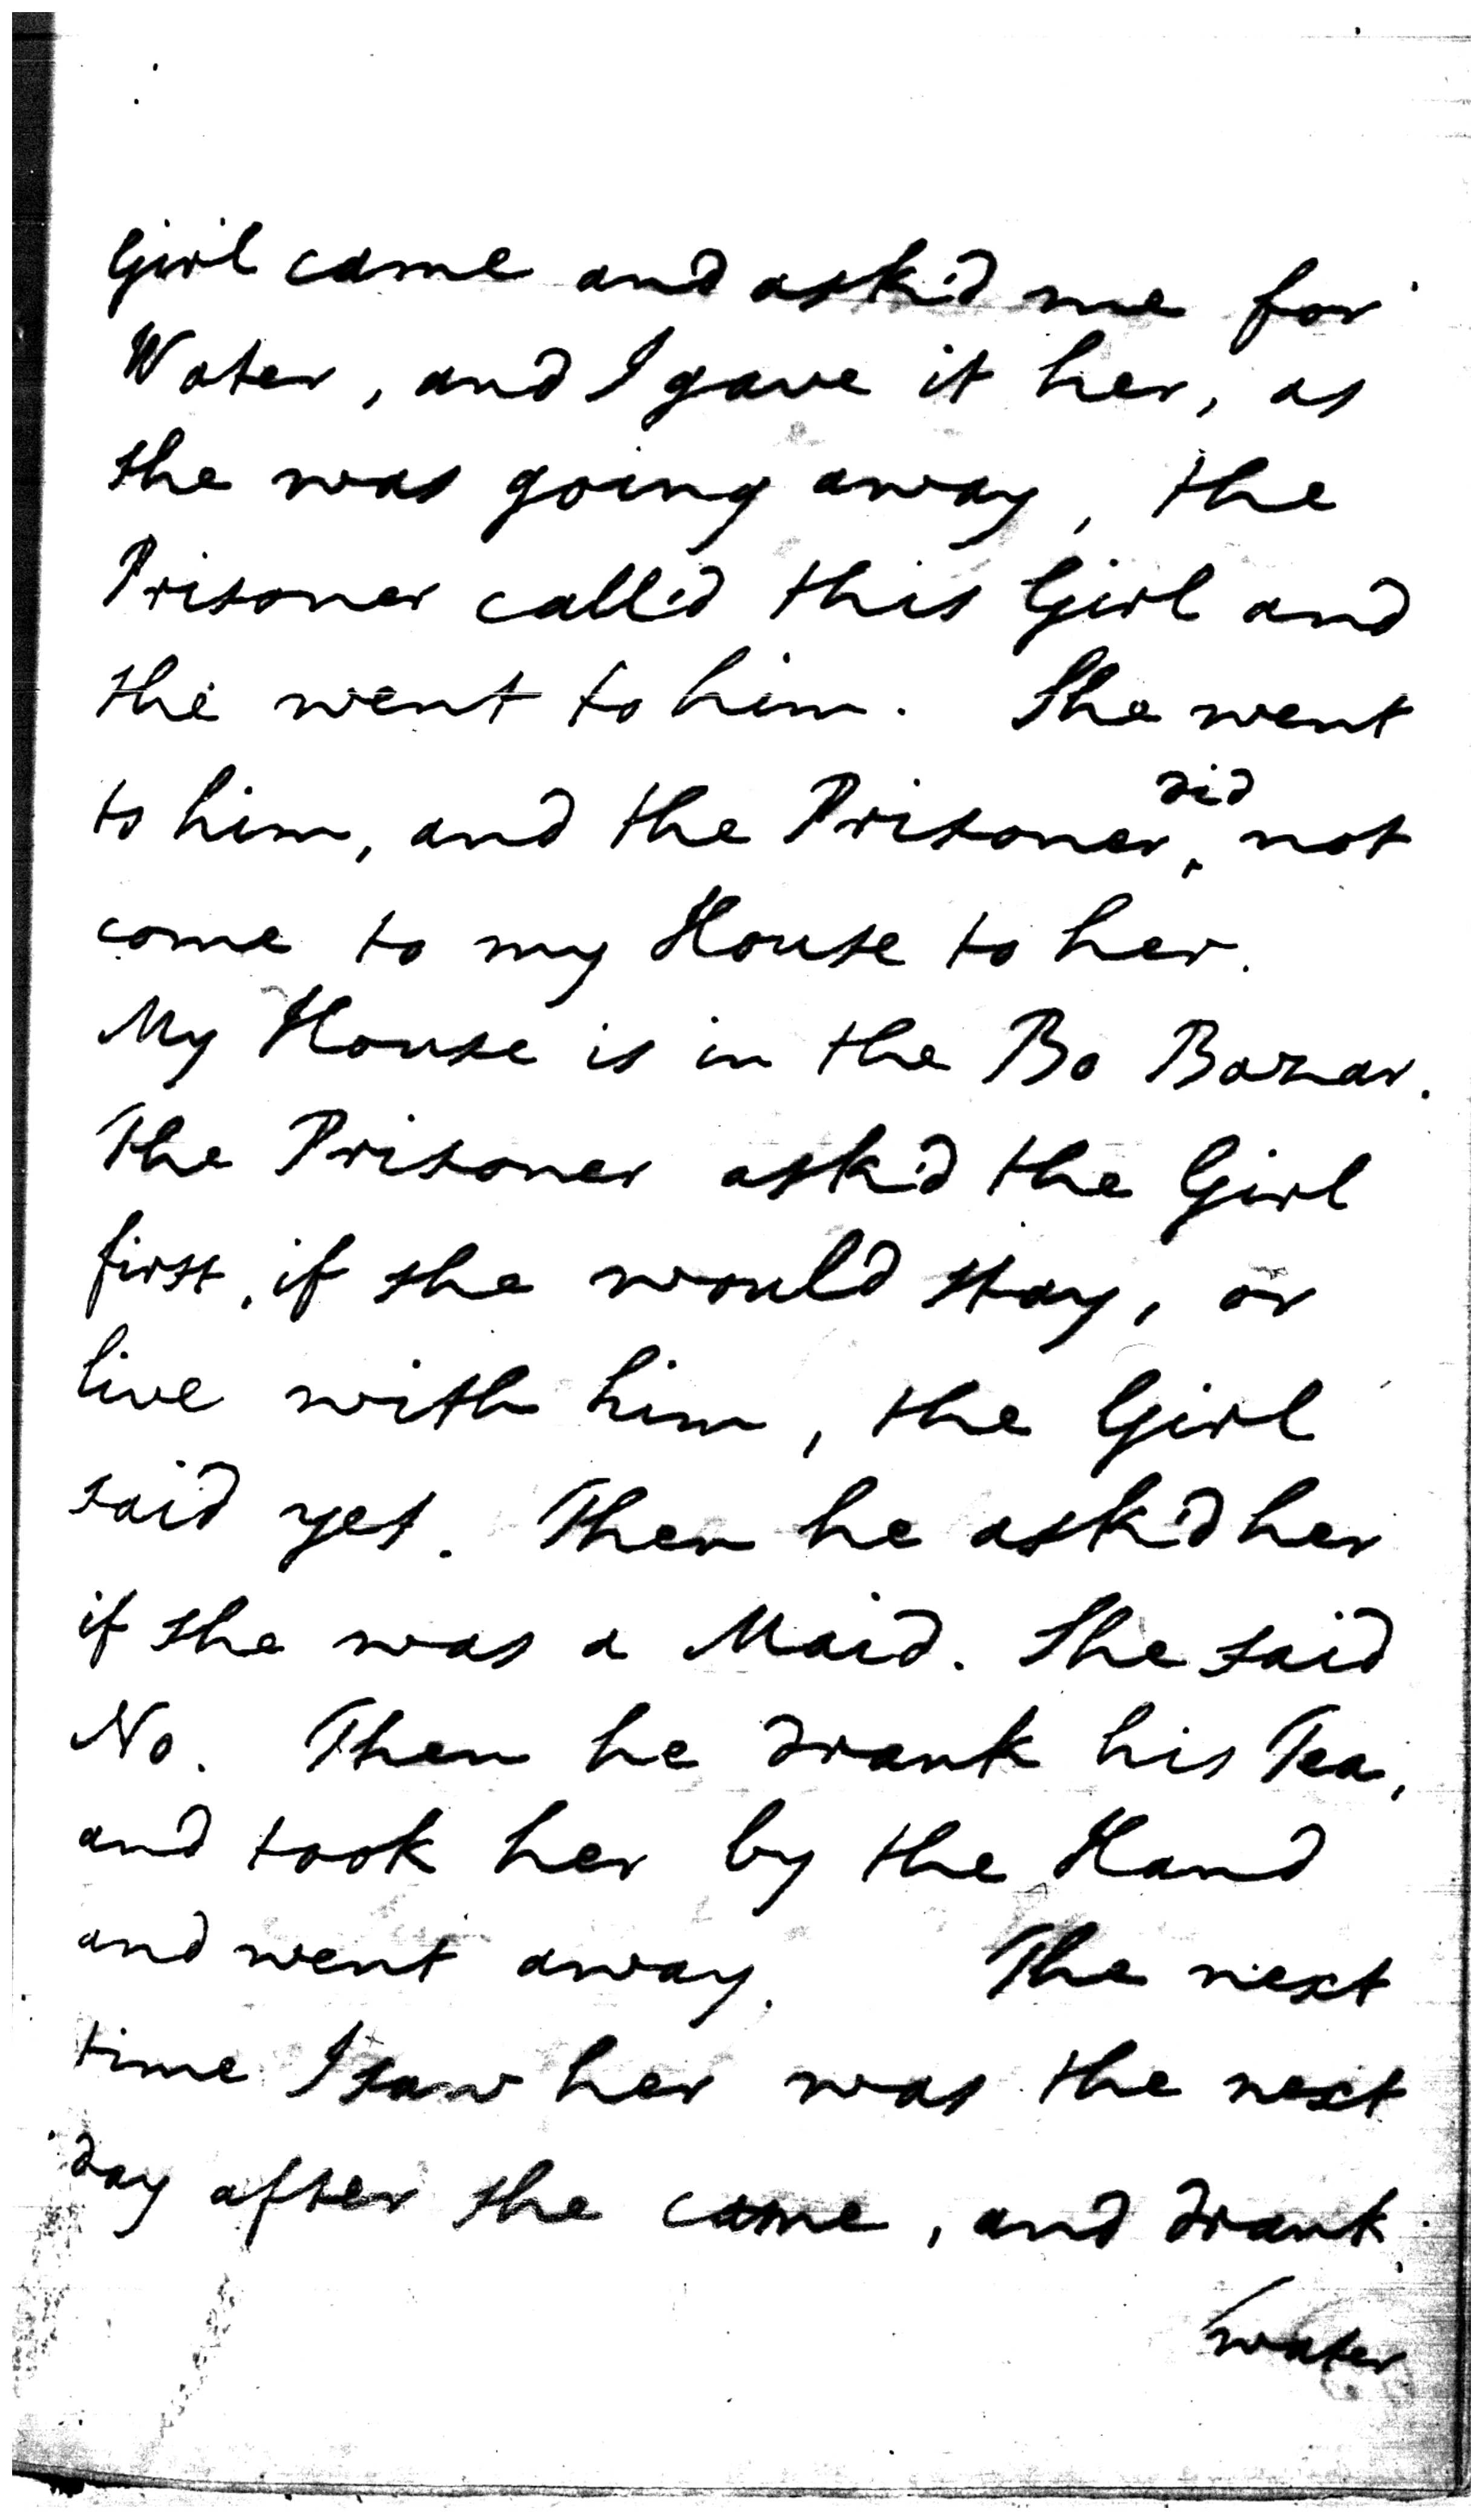 Girl came and ask'd me for
Water, and I gave it her, as
she was going away, the
Prisoner call'd this Girl and
she went to him. She went
to him, and the Prisoner did not
come to my House to her.
My House is in the Bo Bazar.
The Prisoner ask'd the Girl
first, if she would stay, or
live with him, the Girl
said yes. Then he ask'd her
if she was a Maid. She said
No. Then he drank his Tea,
and took her by the Hand
and went away. The next
time I saw her was the next
day after she came, and drank
water